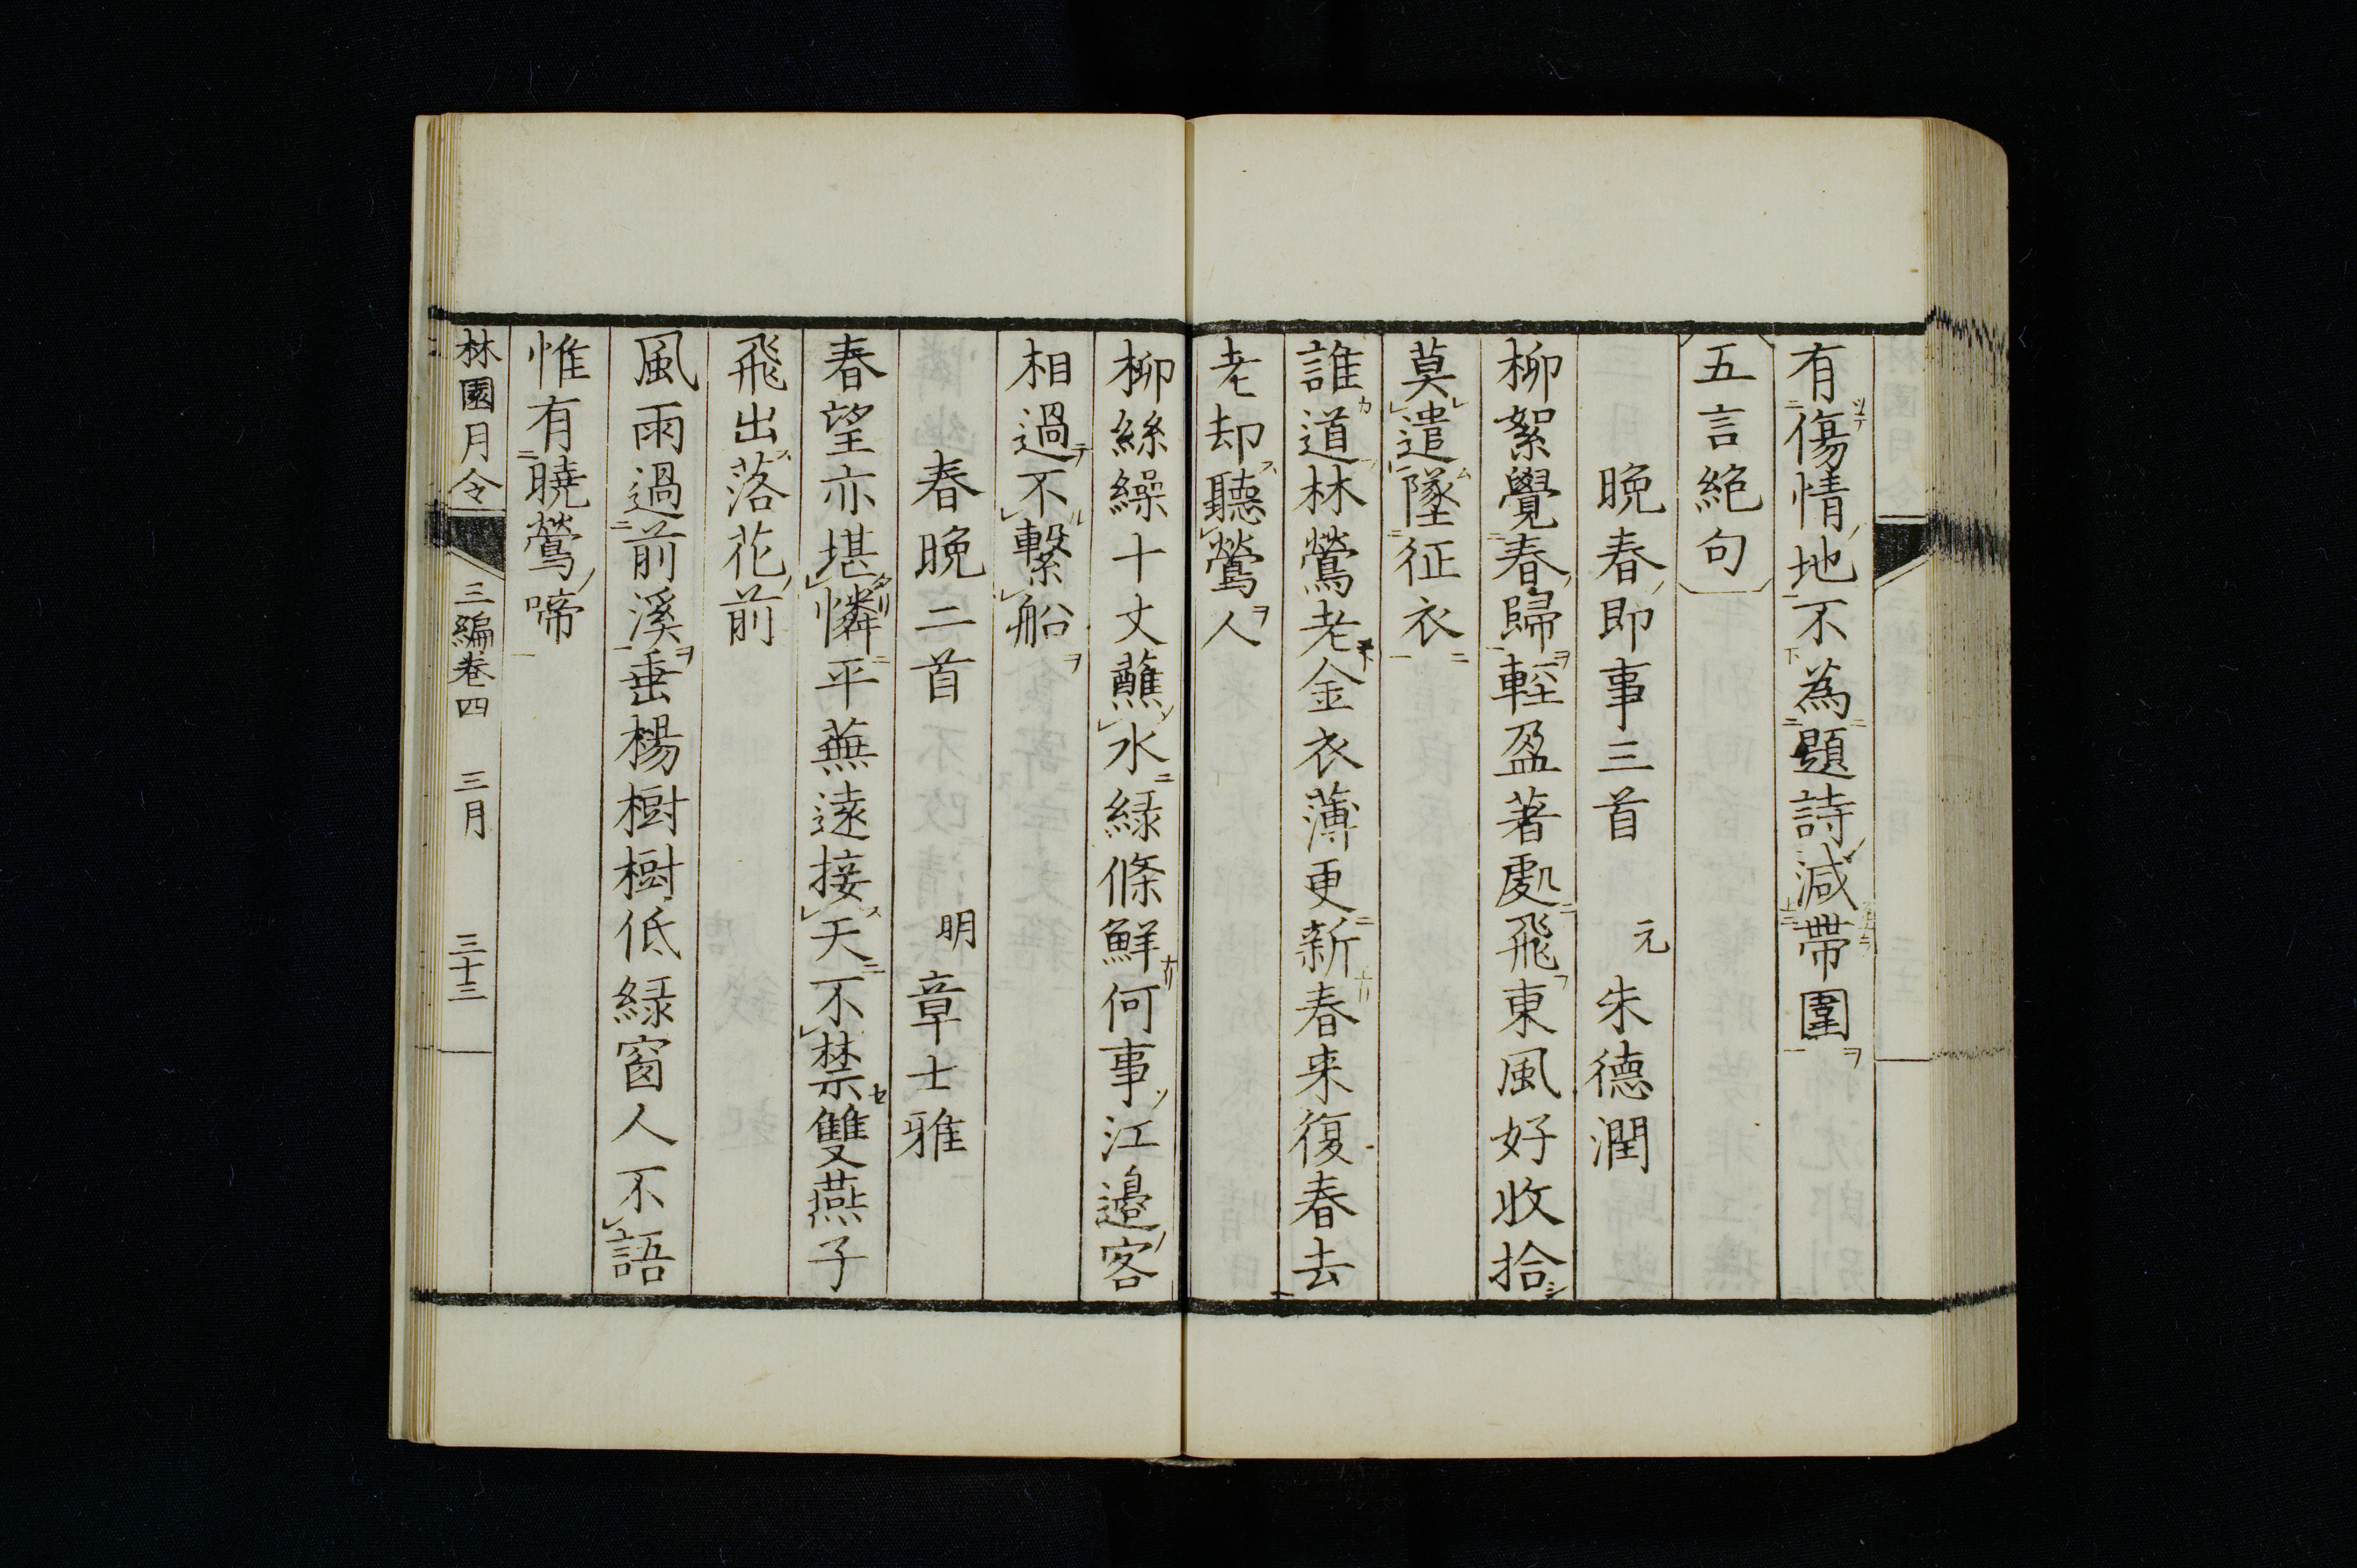 有傷情地不為題詩減帶圍
五言絶句
晩春即事三首　元　朱德潤
柳絮覺春歸輕盈著處飛東風好收拾
莫遣墜征衣
誰道林鶯老金衣薄更新春来復春去
老却聽鶯人
柳絲繰十丈蘸水緑條鮮何事江邉客
相過不繋船
春晩二首　明　章士雅
春望亦堪憐平蕪遠接天不禁雙燕子
飛出落花前
風雨過前溪垂楊樹樹低緑窗人不語
惟有曉鶯啼
林園月令　三編巻四　三月　三十三